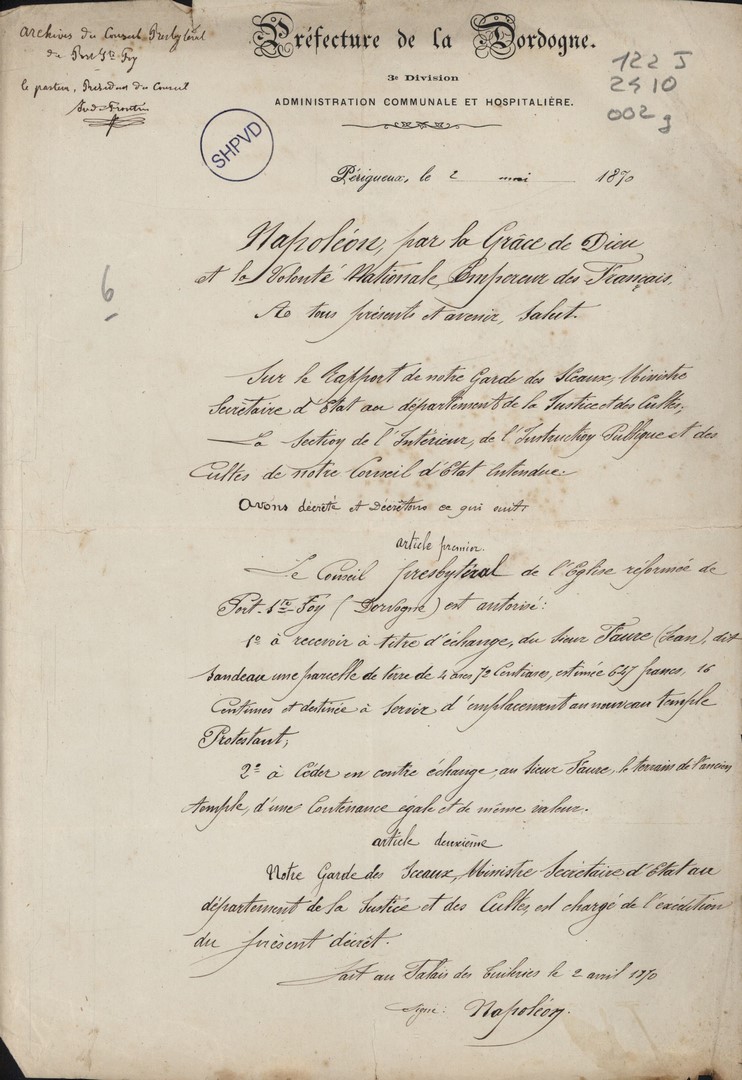 archives du Conseil Presbytéral
de Port Ste Foy
le pasteur, Président du Conseil
Préfecture de la Dordogne.
3e Division
ADMINISTRATION COMMUNALE ET HOSPITALIÈRE.
122 J
2410
002 g
SHPVD
Périgueux, le 2 mai 1870
6
Napoléon, par la Grâce de Dieu
et la Volonté Nationale, Empereur des Français,
A tous présents et avenir, Salut.
Sur le Rapport de notre Garde des Sceaux, Ministre
Secrétaire d'Etat au département de la Justice et des Cultes,
La Section de l'Intérieur, de l'Instruction Publique et des
Cultes de notre Conseil d'Etat entendue.
Avons décrété et Décrétons ce qui suit:
article premier.
Le Conseil presbytéral de l'Eglise réformée de
Port-Ste-Foy (Dordogne) est autorisé:
1o à recevoir à titre d'échange, du Sieur Faure (Jean), dit
Bandeau une parcelle de terre de 4 ares 72 Centiares, estimée 647 francs, 16
Centimes et destinée à Servir d'emplacement au nouveau temple
Protestant;
2o à Céder en contre échange, au Sieur Faure, le terrain de l'ancien
temple, d'une Contenance égale et de même valeur.
article deuxième
Notre Garde des Sceaux, Ministre Secrétaire d'Etat au
département de la Justice et des Cultes, est chargé de l'exécution
du présent décret.
Fait au Palais des Tuileries le 2 avril 1870
Signé: Napoléon.